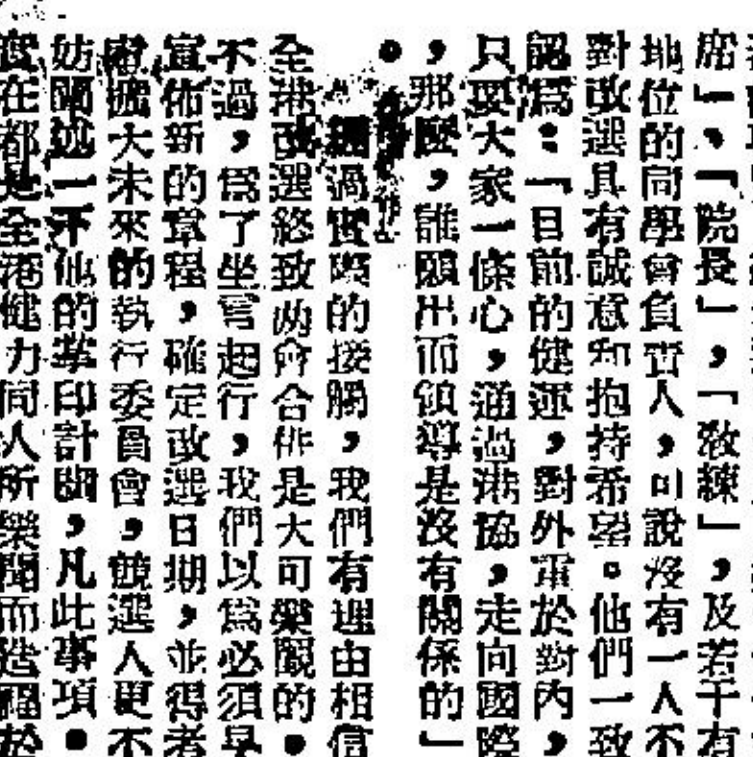 席」、「院長」,「教練」,及若干有
地位的同學會負責人,可說沒有一人不
對改選具有誠意和抱持希望。他們一致
認爲:「目前的健運,對外重於對內,
只要大家一條心,通過港協,走向國際
,那麼,誰願出而領導是沒有關係的」
。
過實際的接觸,我們有理由相信
全港改選終致两會合併是大可樂觀的。
不過,爲了坐言起行,我們以爲必須早
宣佈新的章程,確定改選日期,並得者
大未來的執行委員會,競選人更不
妨闡述一下他的藍印計劃,凡此事項。
實在都是全港健力同人所樂聞而造福於